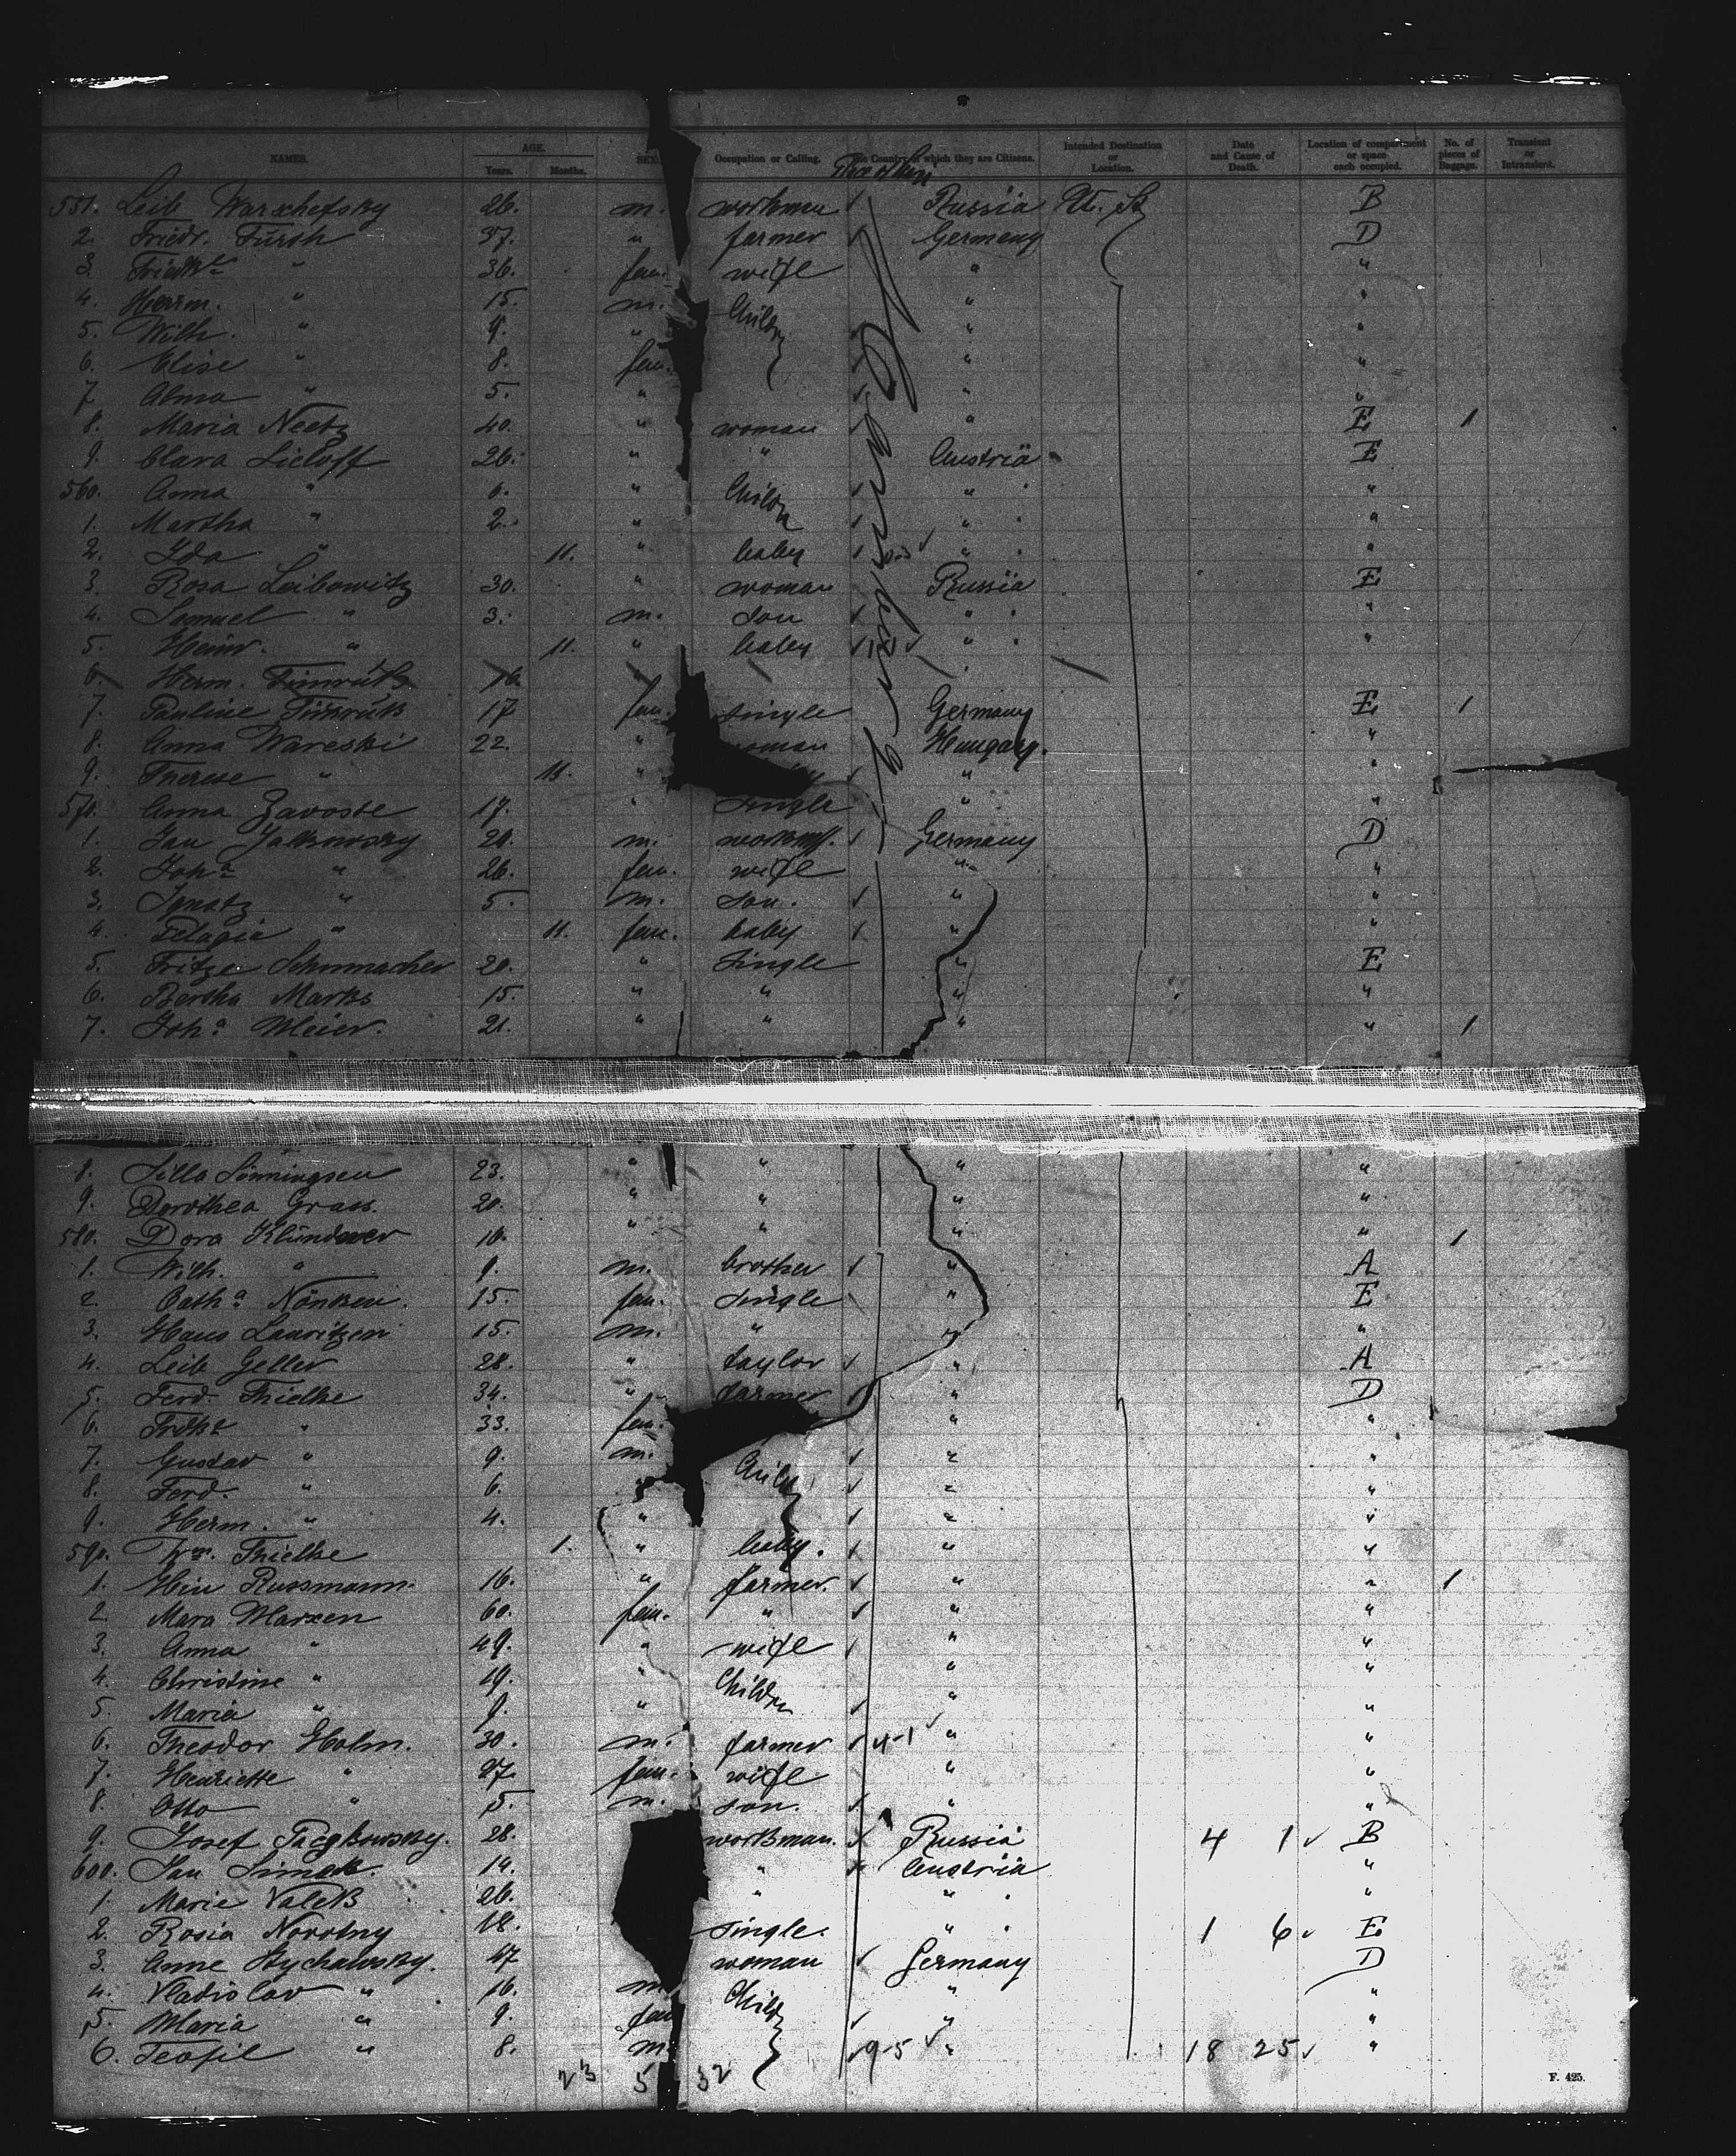 NAMES. AGE. Years. Months. SEX. Occupation or Calling. The Country of which they are Citizens. Intended Destination or Location. Date and Cause of Death. Location of compartment or space each occupied. No. of pieces of Baggage. Transient or Intransient.
551. Leib Warschefsky 26. m. workman Russia U. St B
2. Friedr. Fürth 37. " farmer Germany D
3. " 36. fem. wife " "
4. Herm. " 15. m. Childr " "
5. Wilh. " 9. " " "
6. Elise " 8. fem. " "
7. Alma " 5. " " "
8. Maria Neetz 40. " woman " E 1
9. Clara Lieloff 26. " " Austria E
560. Anna " 6. " Childn " "
1. Martha " 2. " " "
2. Ida " 11. " baby " "
3. Rosa Leibowitz 30. " woman Russia E
4. Samuel " 3. m. son " "
5. Heinr. " 11. " baby " "
6. Herm. 16.
7. Pauline 17 fem. single Germany E 1
8. Anna Wareski 22. " woman Hungary. "
9. Therese " 11. " " "
570. Anna Zavoste 17. " single " "
1. Jan Jalkowsky 29. m. workm. Germany D
2. Joha " 26. fem. wife " "
3. Ignatz " 5. m. son. " "
4. Pelagie " 11. fem. baby " "
5. Fritze Schumacher 20. " single " E
6. Bertha Marks 15. " " " "
7. Joha Meier. 21. " " " " 1
8. Silla Sönningsen 23. " " " "
9. Dorothea Grass. 20. " " " "
580. Dora Klündwer 16. " " " " 1
1. Wilh. " 9. m. brother " A
2. Catha Nönksen. 15. fem. single " E
3. Hans Lauritzen 15. m. " " "
4. Leib Geller 28. " taylor " A
5. Ferd. Thielke 34. " farmer " D
6. " 33. fem. " "
7. Gustav " 9. m. Childr " "
8. Ferd. " 6. " " "
9. Herm. " 4. " " "
590. Wm. Thielke 1. " baby. " "
1. Hin Russmann. 16. " farmer. " " 1
2. Mara Marxen 60. fem. " " "
3. Anna " 49. " wife " "
4. Christine " 19. " Childn " "
5. Maria " 9. " " "
6. Theodor Holm. 30. m. farmer 4-1 " "
7. Henriette " 27. fem. wife " "
8. Otto " 5. m. son. " "
9. Josef 28. workman. Russia 4 1 B
600. Jan Simek. 19. " Austria "
1. Marie Valek 26. " " "
2. Rosia Novotny 18. single. " 1 6 E
3. Anne Stychalvsky. 47 woman Germany D
4. Vladislav " 16. m. Childr " "
5. Maria " 9. fem " "
6. Teofil " 8. m. 9-5 " 18 25 "
23 5 32
F. 425.